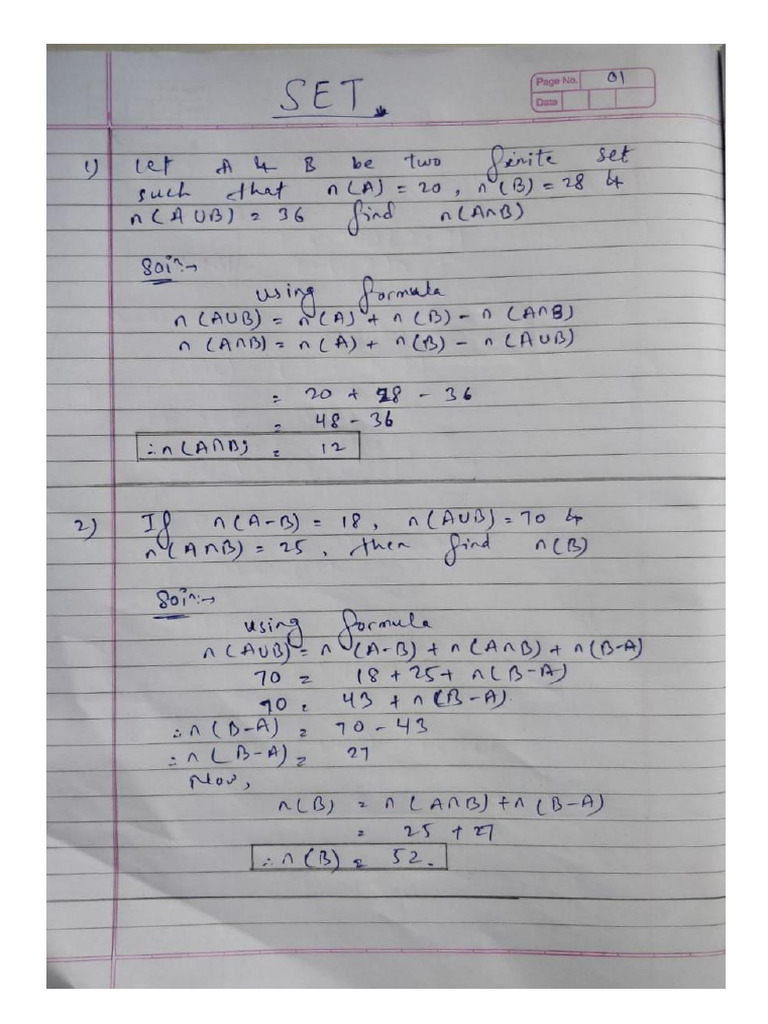 SET
Page No. 01
Date
1) Let A & B be two finite set
such that n(A) = 20, n(B) = 28 &
n(A∪B) = 36 find n(A∩B)
Soln:→
using formula
n(A∪B) = n(A) + n(B) - n(A∩B)
n(A∩B) = n(A) + n(B) - n(A∪B)
= 20 + 28 - 36
= 48 - 36
∴ n(A∩B) = 12
2) If n(A-B) = 18, n(A∪B) = 70 &
n(A∩B) = 25, then find n(B)
Soln:→
using formula
n(A∪B) = n(A-B) + n(A∩B) + n(B-A)
70 = 18 + 25 + n(B-A)
70 = 43 + n(B-A)
∴ n(B-A) = 70 - 43
∴ n(B-A) = 27
Now,
n(B) = n(A∩B) + n(B-A)
= 25 + 27
∴ n(B) = 52.